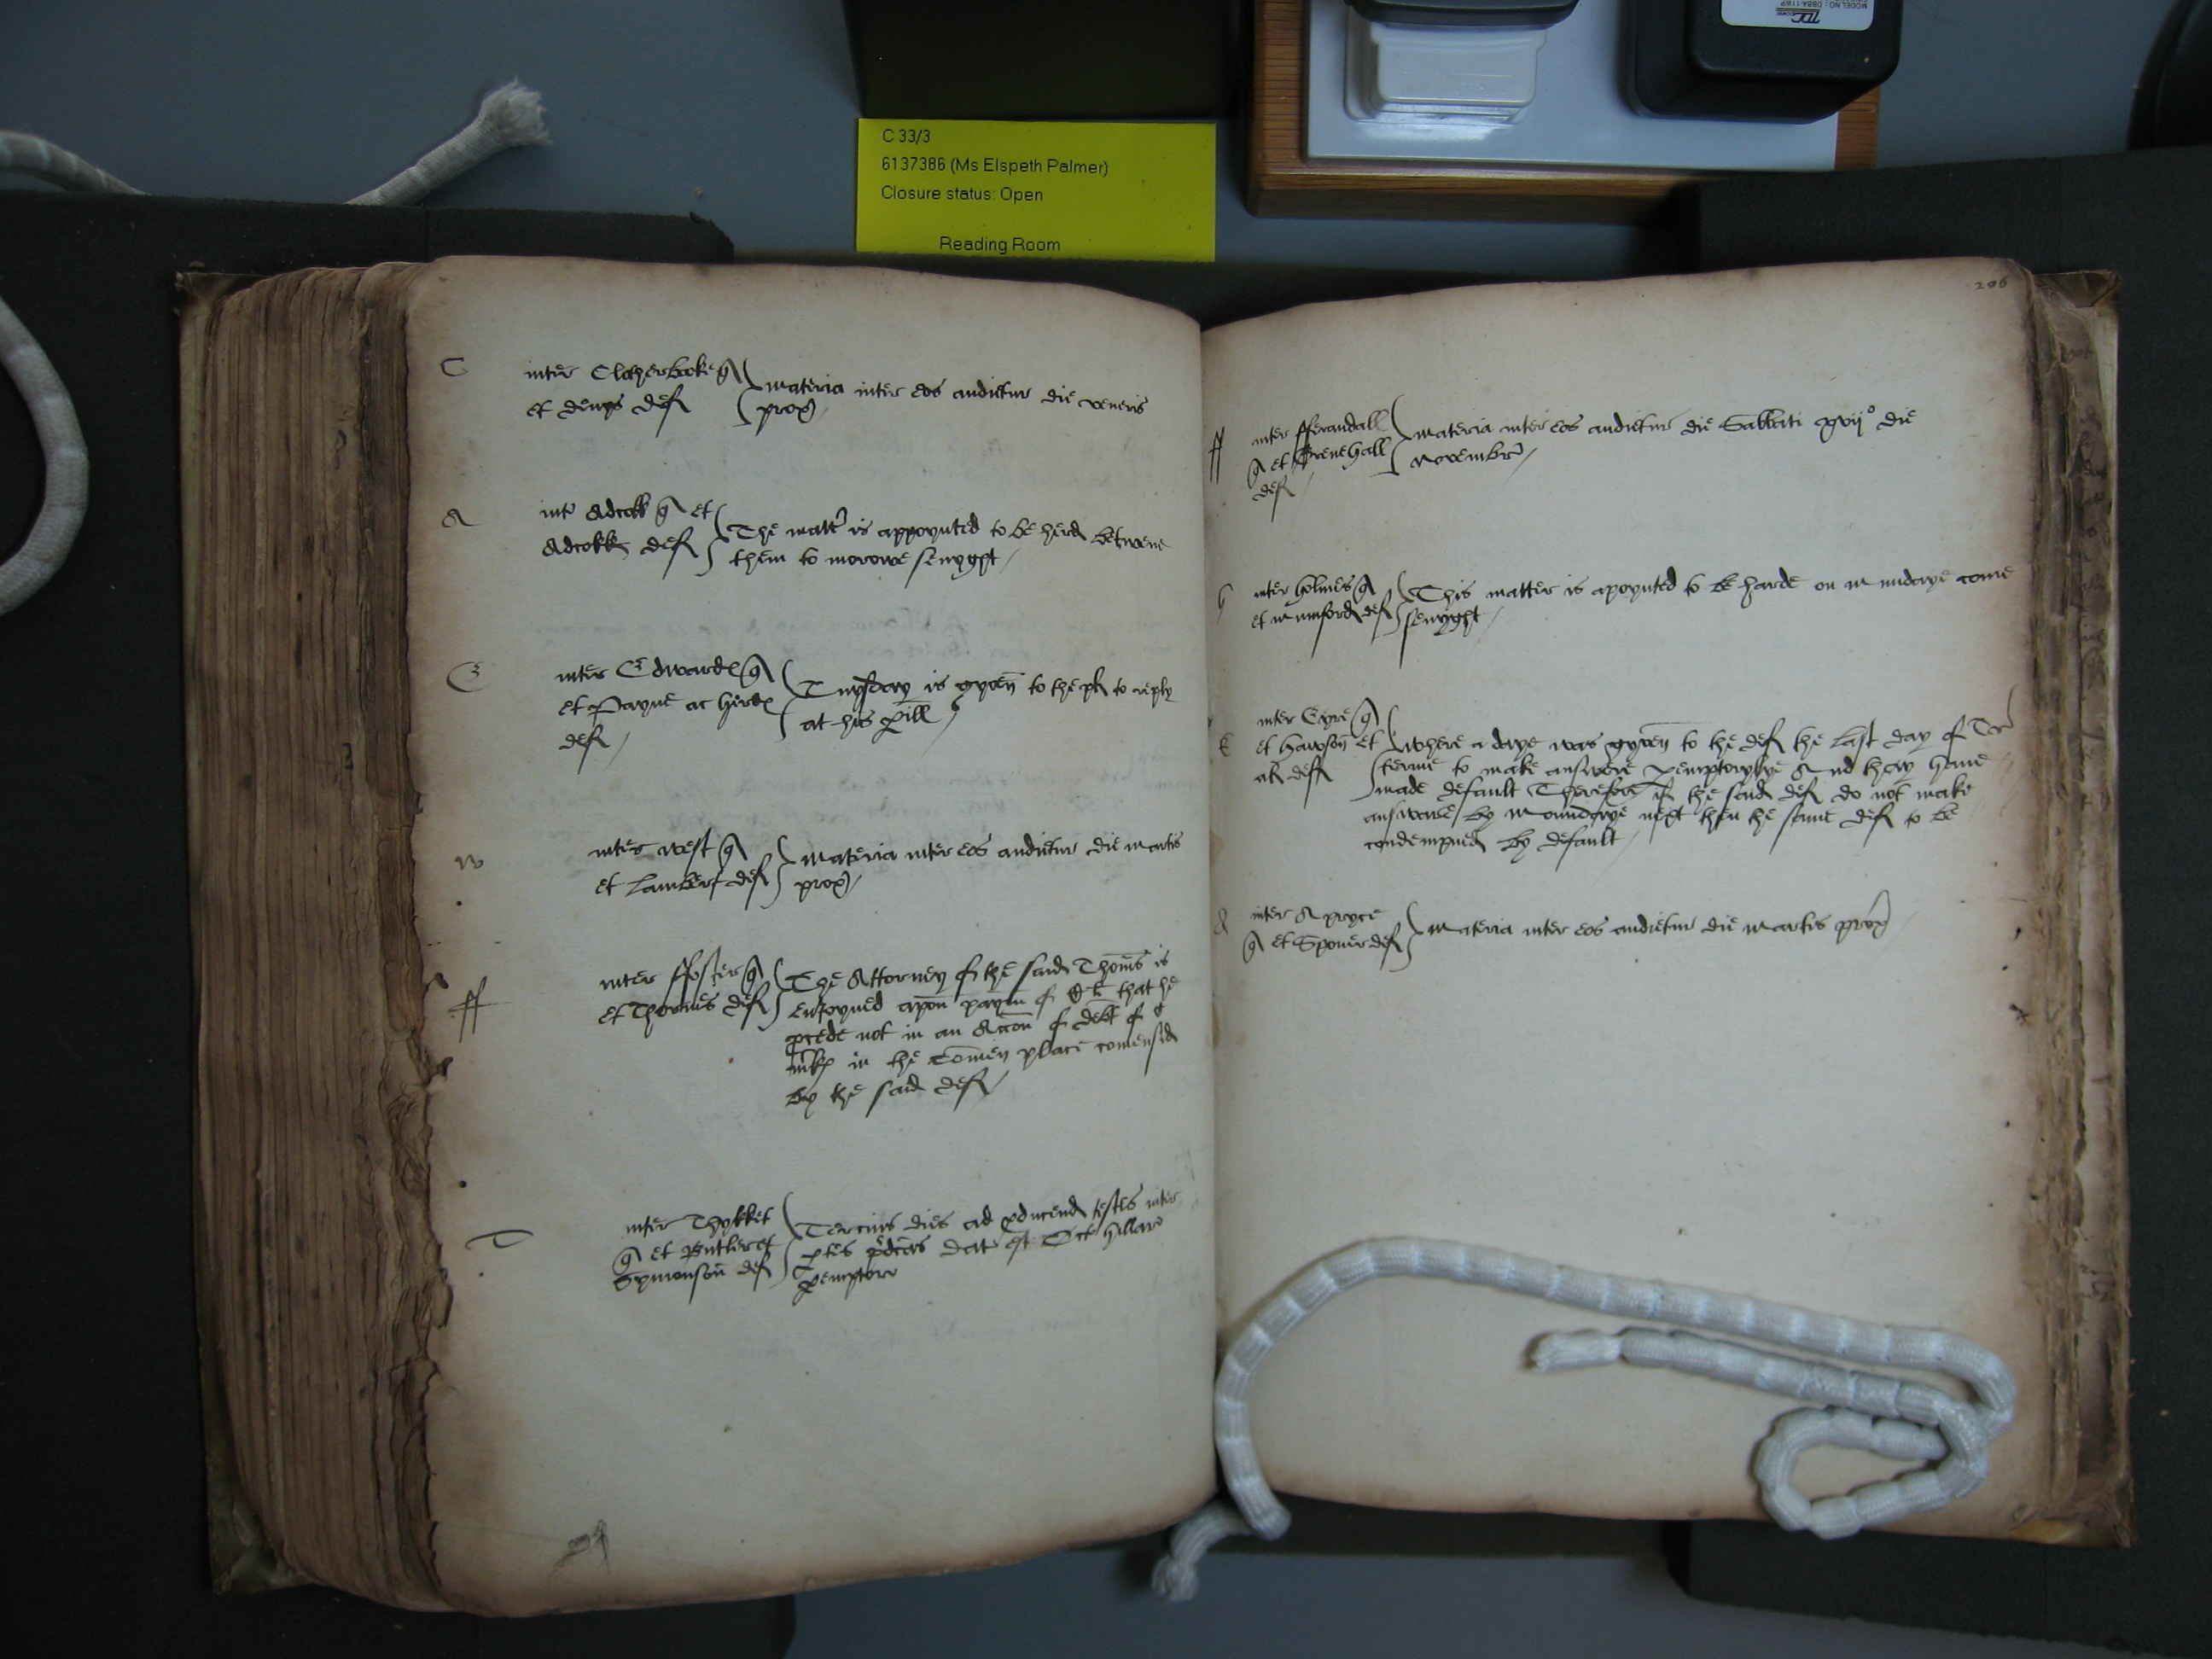 MODEL NO: DBBA-11WP
C 33/3
6137386 (Ms Elspeth Palmer)
Closure status: Open
Reading Room
C
inter Clocherboke q
et denys def
materia inter eos audietur die veneris
prox
A
inter Adcokk q et
Adcokk def
The matt is appoynted to be herd betwene
them to morowe senyght
E
inter Edwardes q
et Payne ac
def
Tuysday is gyven to the pl to reply
at his pill
W
inter West q
et Lambert def
Materia inter eos audietur die martis
prox
ff
inter ffoster q
et Thomas def
The Attorney of the said Thomas is
enioyned apon paym of that he
pcede not in an Accon of debt of
mks in the Comen place comensid
by the said def
T
inter Thykket
q et Butler et
Symonson def
Tercius dies ad pducend testes inter
ptes pdcas dat est Oct Hillar
pemptor
206
ff
inter fferandall
q et Grenehall
def
Materia inter eos audietur die Sabbati xvij o die
Novembr
h
inter Holmes q
et Mumford def
This matter is apoynted to be harde on Mundaye come
senyght
E
inter Eyre q
et Hawson et
al def
Where a daye was gyven to the def the last day of
terme to make answere pemptorylye And they have
made default Therefore if the said def do not make
answere by Moundaye next then the same def to be
condempned by default
A
inter Apryce
q et Sponer def
Materia inter eos audietur die martis prox